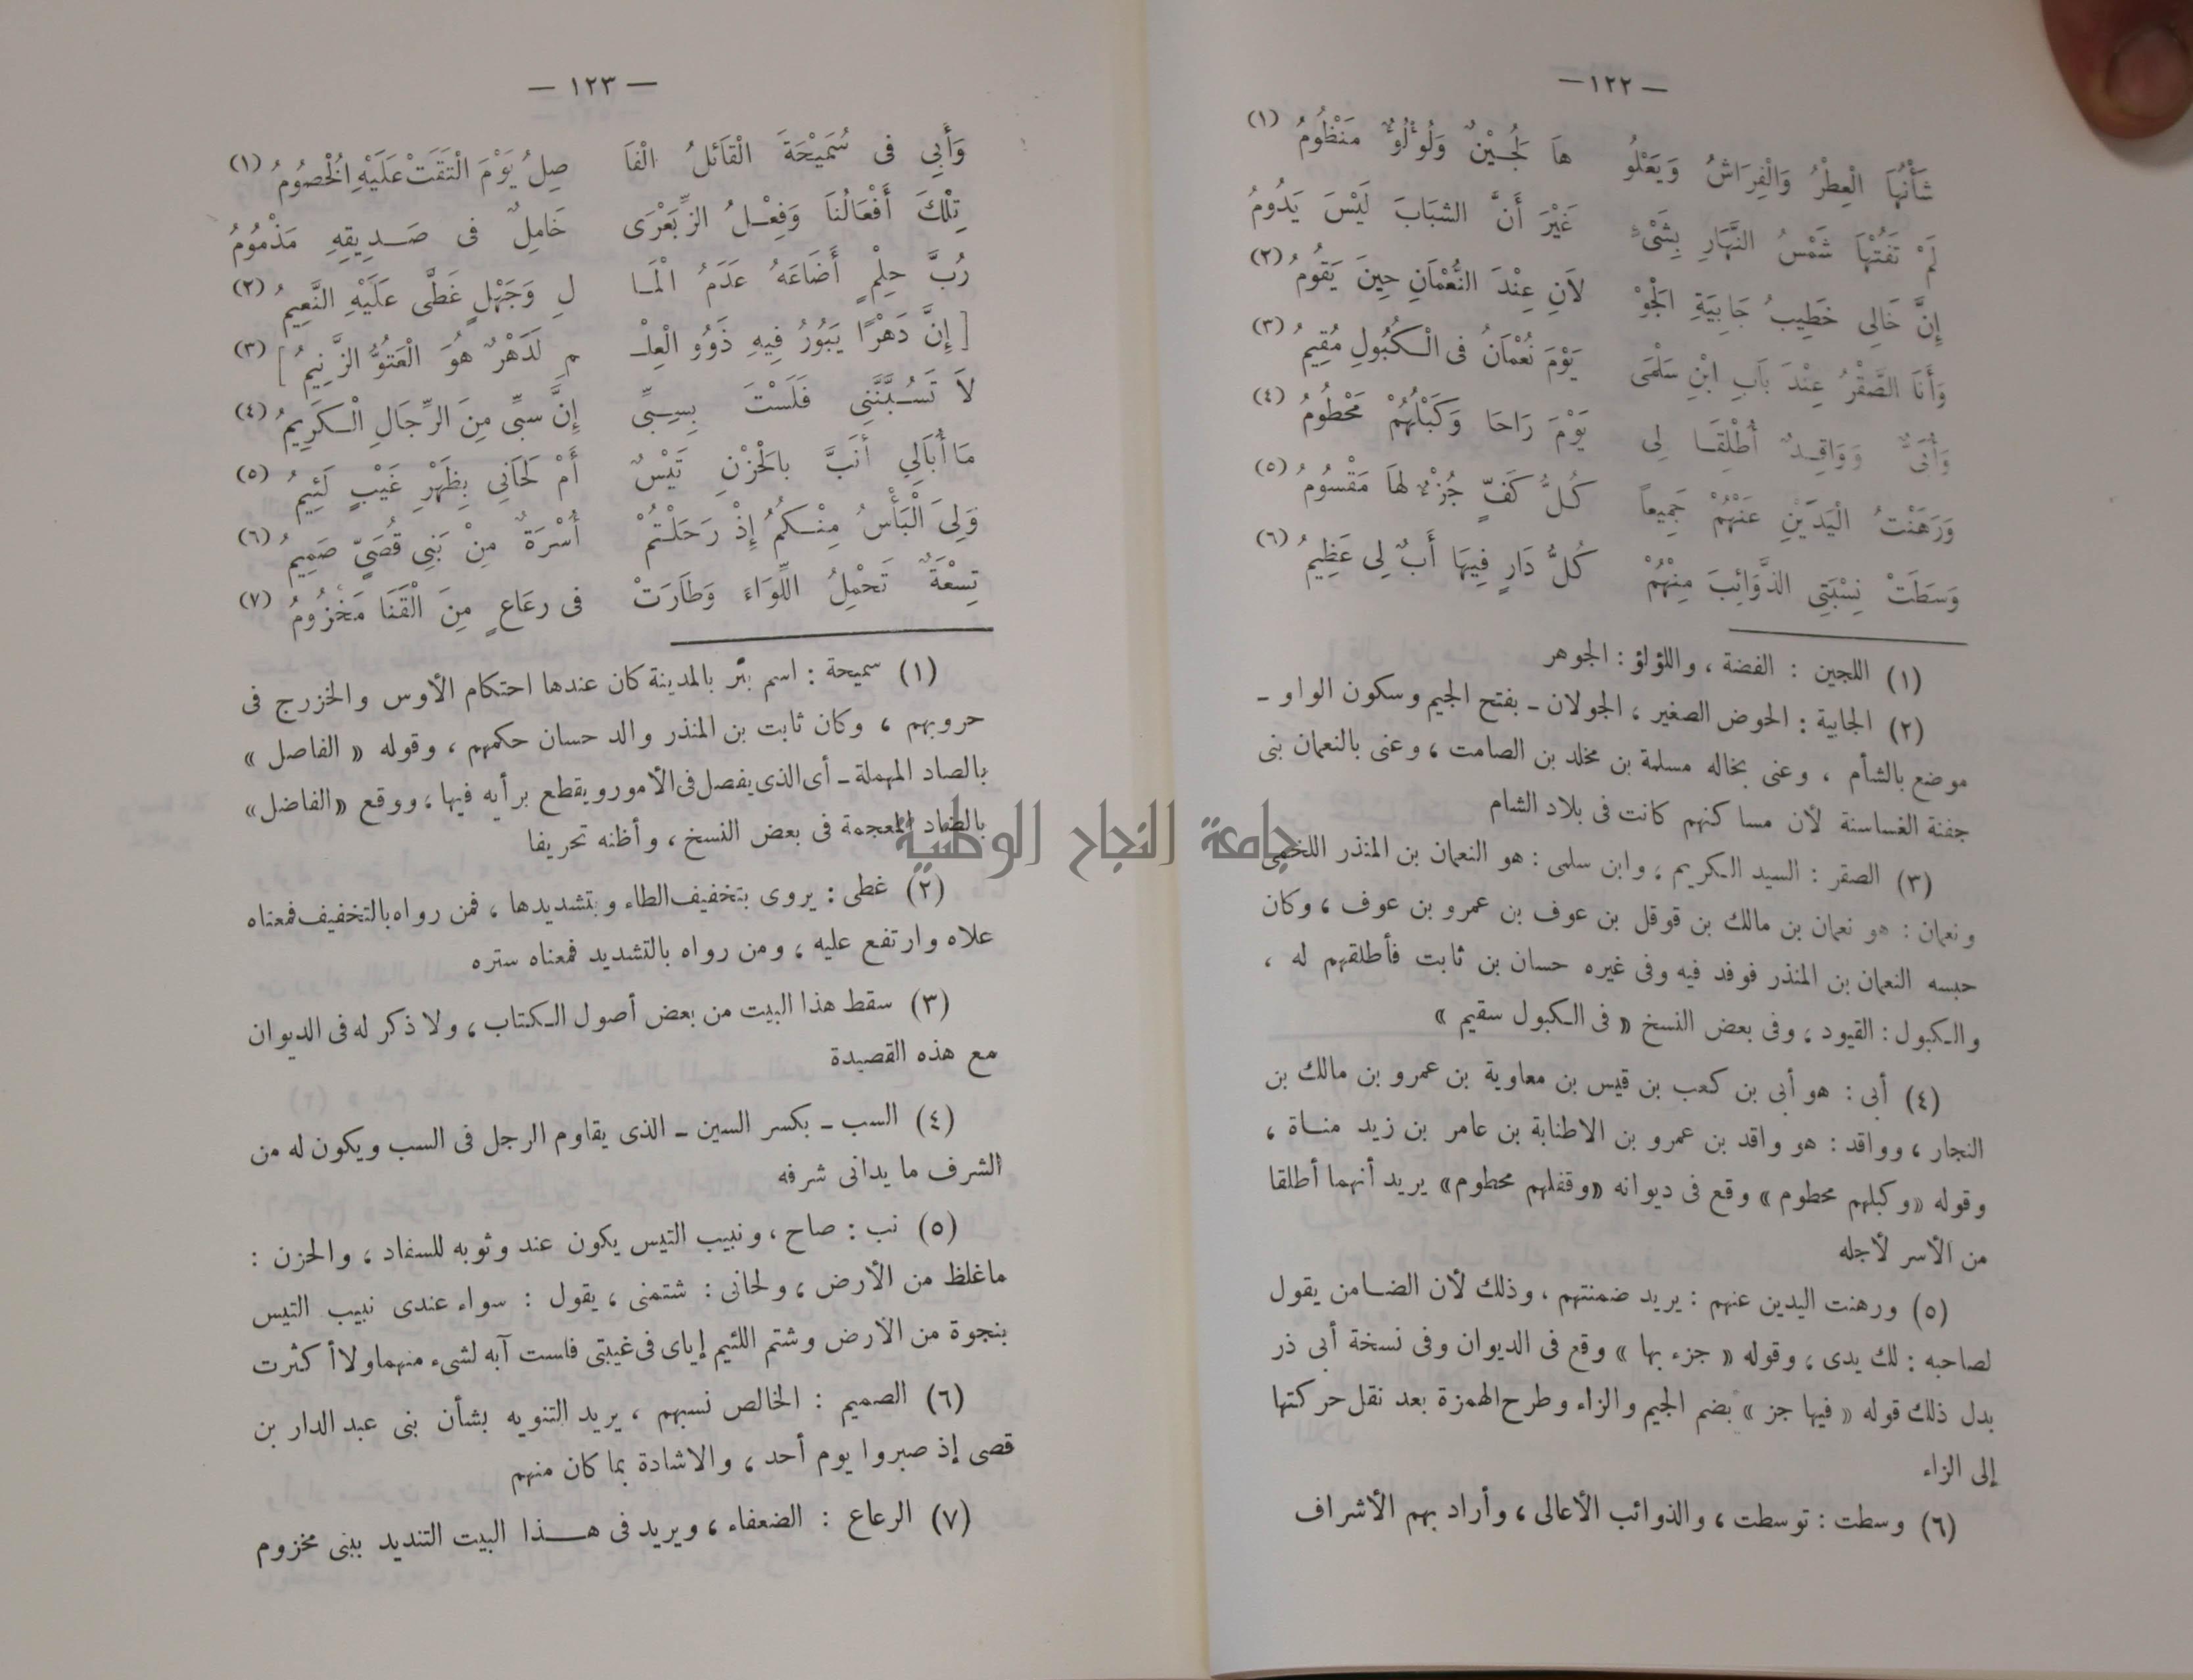 — ١٢٢ —
شَأْنُهَا الْعِطْرُ وَالْفِرَاشُ وَيَعْلُو هَا لُجَـيْنٌ وَلُؤْلُؤٌ مَنْظُومُ (١)
لَمْ تَفُتْهَا شَمْسُ النَّهَارِ بِشَىْءٍ غَيْرَ أَنَّ الشبَابَ لَيْسَ يَدُومُ
إِنَّ خَالِى خَطِيبُ جَابِيَةِ الْجَوْ لاَنِ عِنْدَ النُّعْمَانِ حِينَ يَقُومُ (٢)
وَأَنَا الصَّقْرُ عِنْدَ بَابِ ابْنِ سَلْمَى يَوْمَ نُعْمَانُ فى الْـكُبُولِ مُقِيمُ (٣)
وَأُبَىٌّ وَوَاقِـدٌ أُطْلِقَـا لِى يَوْمَ رَاحَا وَكَبْلُهُمْ مَحْطُومُ (٤)
وَرَهَنْتُ الْيَدَيْنِ عَنْهُمْ جَمِيعاً كُـلُّ كَفٍّ جُزْءٌ لهَا مَقْسُومُ (٥)
وَسَطَتْ نِسْبَتِى الذَّوَائِبَ مِنْهُمْ كُلُّ دَارٍ فِيهَا أَبٌ لِى عَظِيمُ (٦)
(١) اللجين : الفضة ، واللؤلؤ : الجوهر
(٢) الجابية : الحوض الصغير ، الجولان ـ بفتح الجيم وسكون الواو ـ
موضع بالشأم ، وعنى بخاله مسلمة بن مخلد بن الصامت ، وعنى بالنعمان بنى
جفنة الغساسنة لأن مساكنهم كانت فى بلاد الشام
(٣) الصقر : السيد الـكريم ، وابن سلمى : هو النعمان بن المنذر اللخمى
ونعمان : هو نعمان بن مالك بن قوقل بن عوف بن عمرو بن عوف ، وكان
حبسه النعمان بن المنذر فوفد فيه وفى غيره حسان بن ثابت فأطلقهم له ،
والـكبول : القيود ، وفى بعض النسخ « فى الـكبول سقيم »
(٤) أبى : هو أبى بن كعب بن قيس بن معاوية بن عمرو بن مالك بن
النجار ، وواقد : هو واقد بن عمرو بن الاطنابة بن عامر بن زيد منـاة ،
وقوله «وكبلهم محطوم» وقع فى ديوانه «وقفلهم محطوم» يريد أنهما أطلقا
من الأسر لأجله
(٥) ورهنت اليدين عنهم : يريد ضمنتهم ، وذلك لأن الضـامن يقول
لصاحبه : لك يدى ، وقوله « جزء بها » وقع فى الديوان وفى نسخة أبى ذر
بدل ذلك قوله « فيها جز » بضم الجيم والزاء وطرح الهمزة بعد نقل حركتها
إلى الزاء
(٦) وسطت : توسطت ، والذوائب الأعالى ، وأراد بهم الأشراف
— ١٢٣ —
وَأَبِي فى سُمَيْحَةَ الْقَائلُ الْفَا صِلُ يَوْمَ الْتَقَتْ عَلَيْهِ الْخُصُومُ (١)
تِلْكَ أَفْعَالُنَا وَفِعْـلُ الزِّبَعْرَى خَامِلٌ فى صَـدِيقِهِ مَذْمُومُ
رُبَّ حِلْمٍ أَضَاعَهُ عَدَمُ الْمَـا لِ وَجَهْلٍ غَطَّى عَلَيْهِ النَّعِيمُ (٢)
[ إِنَّ دَهْرًا يَبُورُ فِيهِ ذَوُو الْعِلْـ مِ لَدَهْرٌ هُوَ الْعَتُوُّ الزَّنِيمُ ] (٣)
لاَ تَسُـبَّنَّنِي فَلَسْتَ بِسِـبِّى إِنَّ سبِّى مِنَ الرِّجَالِ الْـكَرِيمُ (٤)
مَا أُبَالِي أنَبَّ بالحَزْنِ تَيْسٌ أَمْ لَحَانِى بِظَهْرِ غَيْبٍ لَئِيمُ (٥)
وَلِىَ الْبَأْسُ مِنْـكُمُ إِذْ رَحَلْتُمْ أُسْرَةٌ مِنْ بَنِى قُصَيٍّ صَمِيمُ (٦)
تِسْعَةٌ تَحْمِلُ اللِّوَاءَ وَطَارَتْ فى رعَاعٍ مِنَ الْقَنَا مَخْزُومُ (٧)
(١) سميحة : اسم بئر بالمدينة كان عندها احتكام الأوس والخزرج فى
حروبهم ، وكان ثابت بن المنذر والد حسان حكمهم ، وقوله « الفاصل »
بالصاد المهملة ـ أى الذى يفصل فى الأمور ويقطع برأيه فيها ، ووقع «الفاضل»
بالضاد المعجمة فى بعض النسخ ، وأظنه تحريفا
(٢) غطى : يروى بتخفيف الطاء وبتشديدها ، فمن رواه بالتخفيف فمعناه
علاه وارتفع عليه ، ومن رواه بالتشديد فمعناه ستره
(٣) سقط هذا البيت من بعض أصول الـكتاب ، ولا ذكر له فى الديوان
مع هذه القصيدة
(٤) السب ـ بكسر السين ـ الذى يقاوم الرجل فى السب ويكون له من
الشرف ما يدانى شرفه
(٥) نب : صاح ، ونبيب التيس يكون عند وثوبه للسفاد ، والحزن :
ماغلظ من الأرض ، ولحانى : شتمنى ، يقول : سواء عندى نبيب التيس
بنجوة من الأرض وشتم اللئيم إياى فى غيبتى فلست آبه لشىء منهما ولا أكثرت
(٦) الصميم : الخالص نسبهم ، يريد التنويه بشأن بنى عبد الدار بن
قصى إذ صبروا يوم أحد ، والاشادة بما كان منهم
(٧) الرعاع : الضعفاء ، ويريد فى هـذا البيت التنديد ببنى مخزوم
جامعة النجاح الوطنية